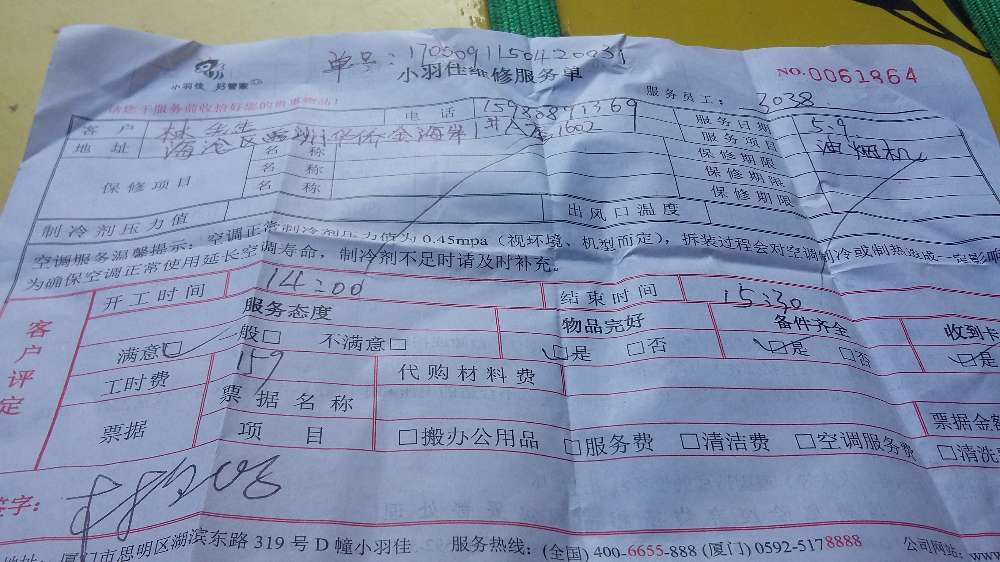 单号：
小羽佳维修服务单
小羽佳 好管家
NO.0061864
服务前收拾好您的贵重物品！
服务员工：3038
客户 林先生 电话 服务日期 5.9
地址 海沧区 华侨金海岸 1602 服务项目 油烟机
保修项目 名称 保修期限
名称 保修期限
名称 保修期限
制冷剂压力值 出风口温度
空调服务温馨提示：空调正常制冷剂压力值为0.45mpa（视环境、机型而定），拆装过程会对空调制冷或制热造成一定影响
为确保空调正常使用延长空调寿命，制冷剂不足时请及时补充。
开工时间 14:00 结束时间 15:30
客户评定
服务态度 物品完好 备件齐全 收到卡
满意□ 一般□ 不满意□ □是 □否 □是 □否 □是
工时费 159 代购材料费
票据 票据名称 票据金额
项目 □搬办公用品 □服务费 □清洁费 □空调服务费 □清洗
签字：
地址：厦门市思明区湖滨东路319号D幢小羽佳 服务热线：(全国) 400-6655-888 (厦门) 0592-5178888 公司网站：www